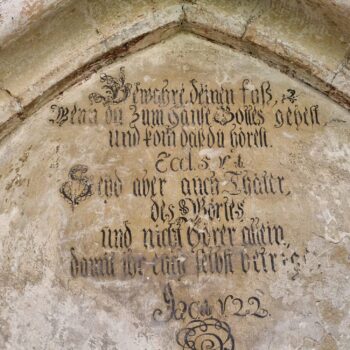 Bewahre deinen fuß,
Wenn du zum Hause Gottes gehest
und kom daß du hörest.
Eccl. 5 v. 1.
Seid aber auch Thäter,
des Wortes
und nicht Hörer allein,
damit ihr euch selbst betrieg
Jacob. 1. 22.